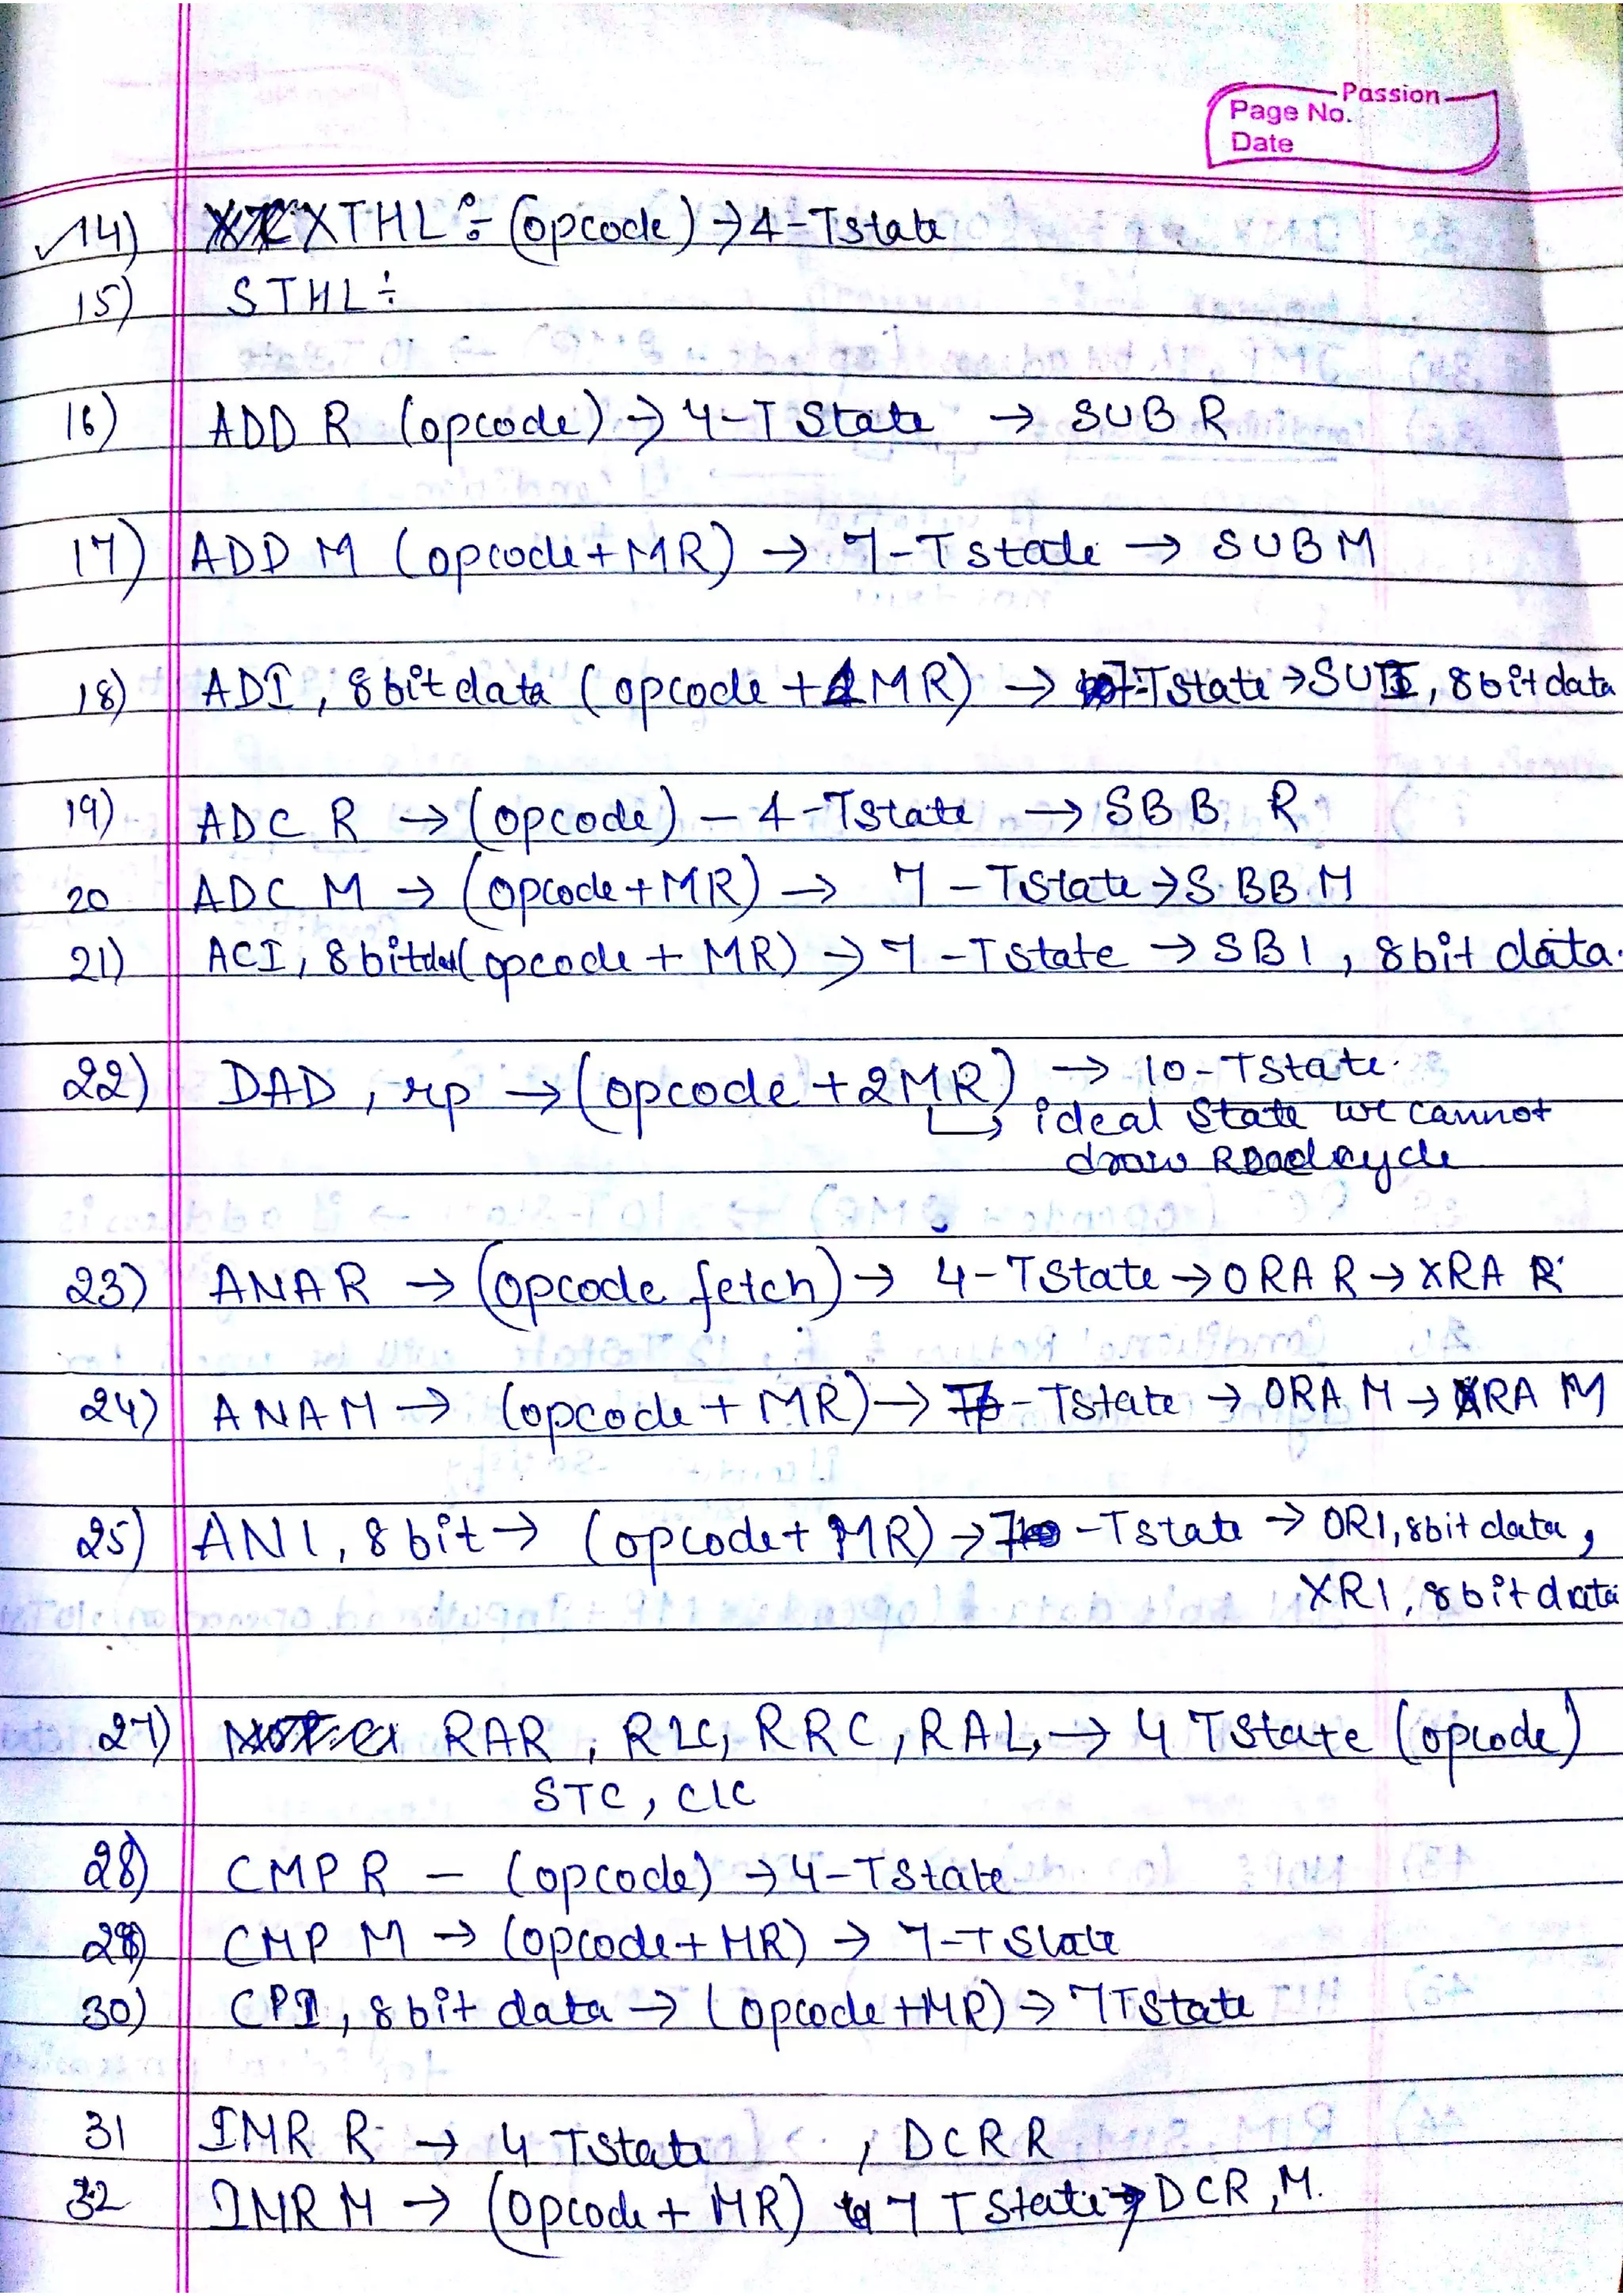 Passion
Page No.
Date
14) XTHL :- (opcode) → 4-Tstate
15) STHL ÷
16) ADD R (opcode) → 4-T State → SUB R
17) ADD M (opcode+MR) → 7-Tstate → SUB M
18) ADI, 8bit data (opcode + 1MR) → 7-Tstate → SUI, 8bit data
19) ADC R → (opcode) - 4-Tstate → SBB R
20 ADC M → (opcode+MR) → 7-Tstate → SBB M
21) ACI, 8bitdat (opcode + MR) → 7-Tstate → SBI, 8bit data.
22) DAD, rp → (opcode + 2MR) → 10-Tstate.
ideal State we cannot
draw Read cycle
23) ANAR → (opcode fetch) → 4-TState → ORA R → XRA R
24) ANAM → (opcode + MR) → 7-Tstate → ORA M → XRA M
25) ANI, 8bit → (opcode + MR) → 7-Tstate → ORI, 8bit data,
XRI, 8bit data
27) RAR, RLC, RRC, RAL, → 4 TState (opcode)
STC, CLC
28) CMP R - (opcode) → 4-TState
29) CMP M → (opcode+MR) → 7-TState
30) CPI, 8bit data → (opcode+MR) → 7TState
31 INR R → 4 TState , DCR R
32 INR M → (opcode + MR) 7 TState → DCR, M.